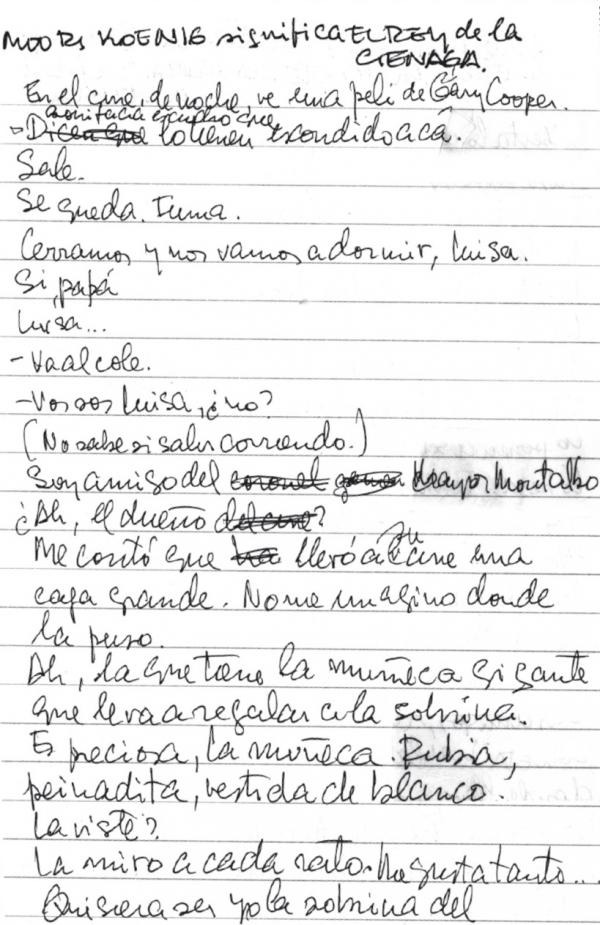 MOORI KOENIG significa EL REY de la
CIENAGA.
En el cine, de noche, ve una peli de Gary Cooper.
escucho que
- Dicen que lo tienen escondido acá.
Sale.
Se queda. Fuma.
Cerramos y nos vamos a dormir, Luisa.
Si, papá
Luisa...
- Va al cole.
- Vos sos Luisa, ¿no?
(No sabe si salir corriendo.)
Soy amigo del coronel Mayor Montalbo
¿Ah, el dueño del cine?
su
Me contó que llevó al cine una
caja grande. No me imagino donde
la puso.
Ah, la que tiene la muñeca gigante
que le va a regalar a la sobrina.
Es preciosa, la muñeca. Rubia,
peinadita, vestida de blanco.
La viste?
La miro a cada rato. Me gusta tanto...
Quisiera ser yo la sobrina del